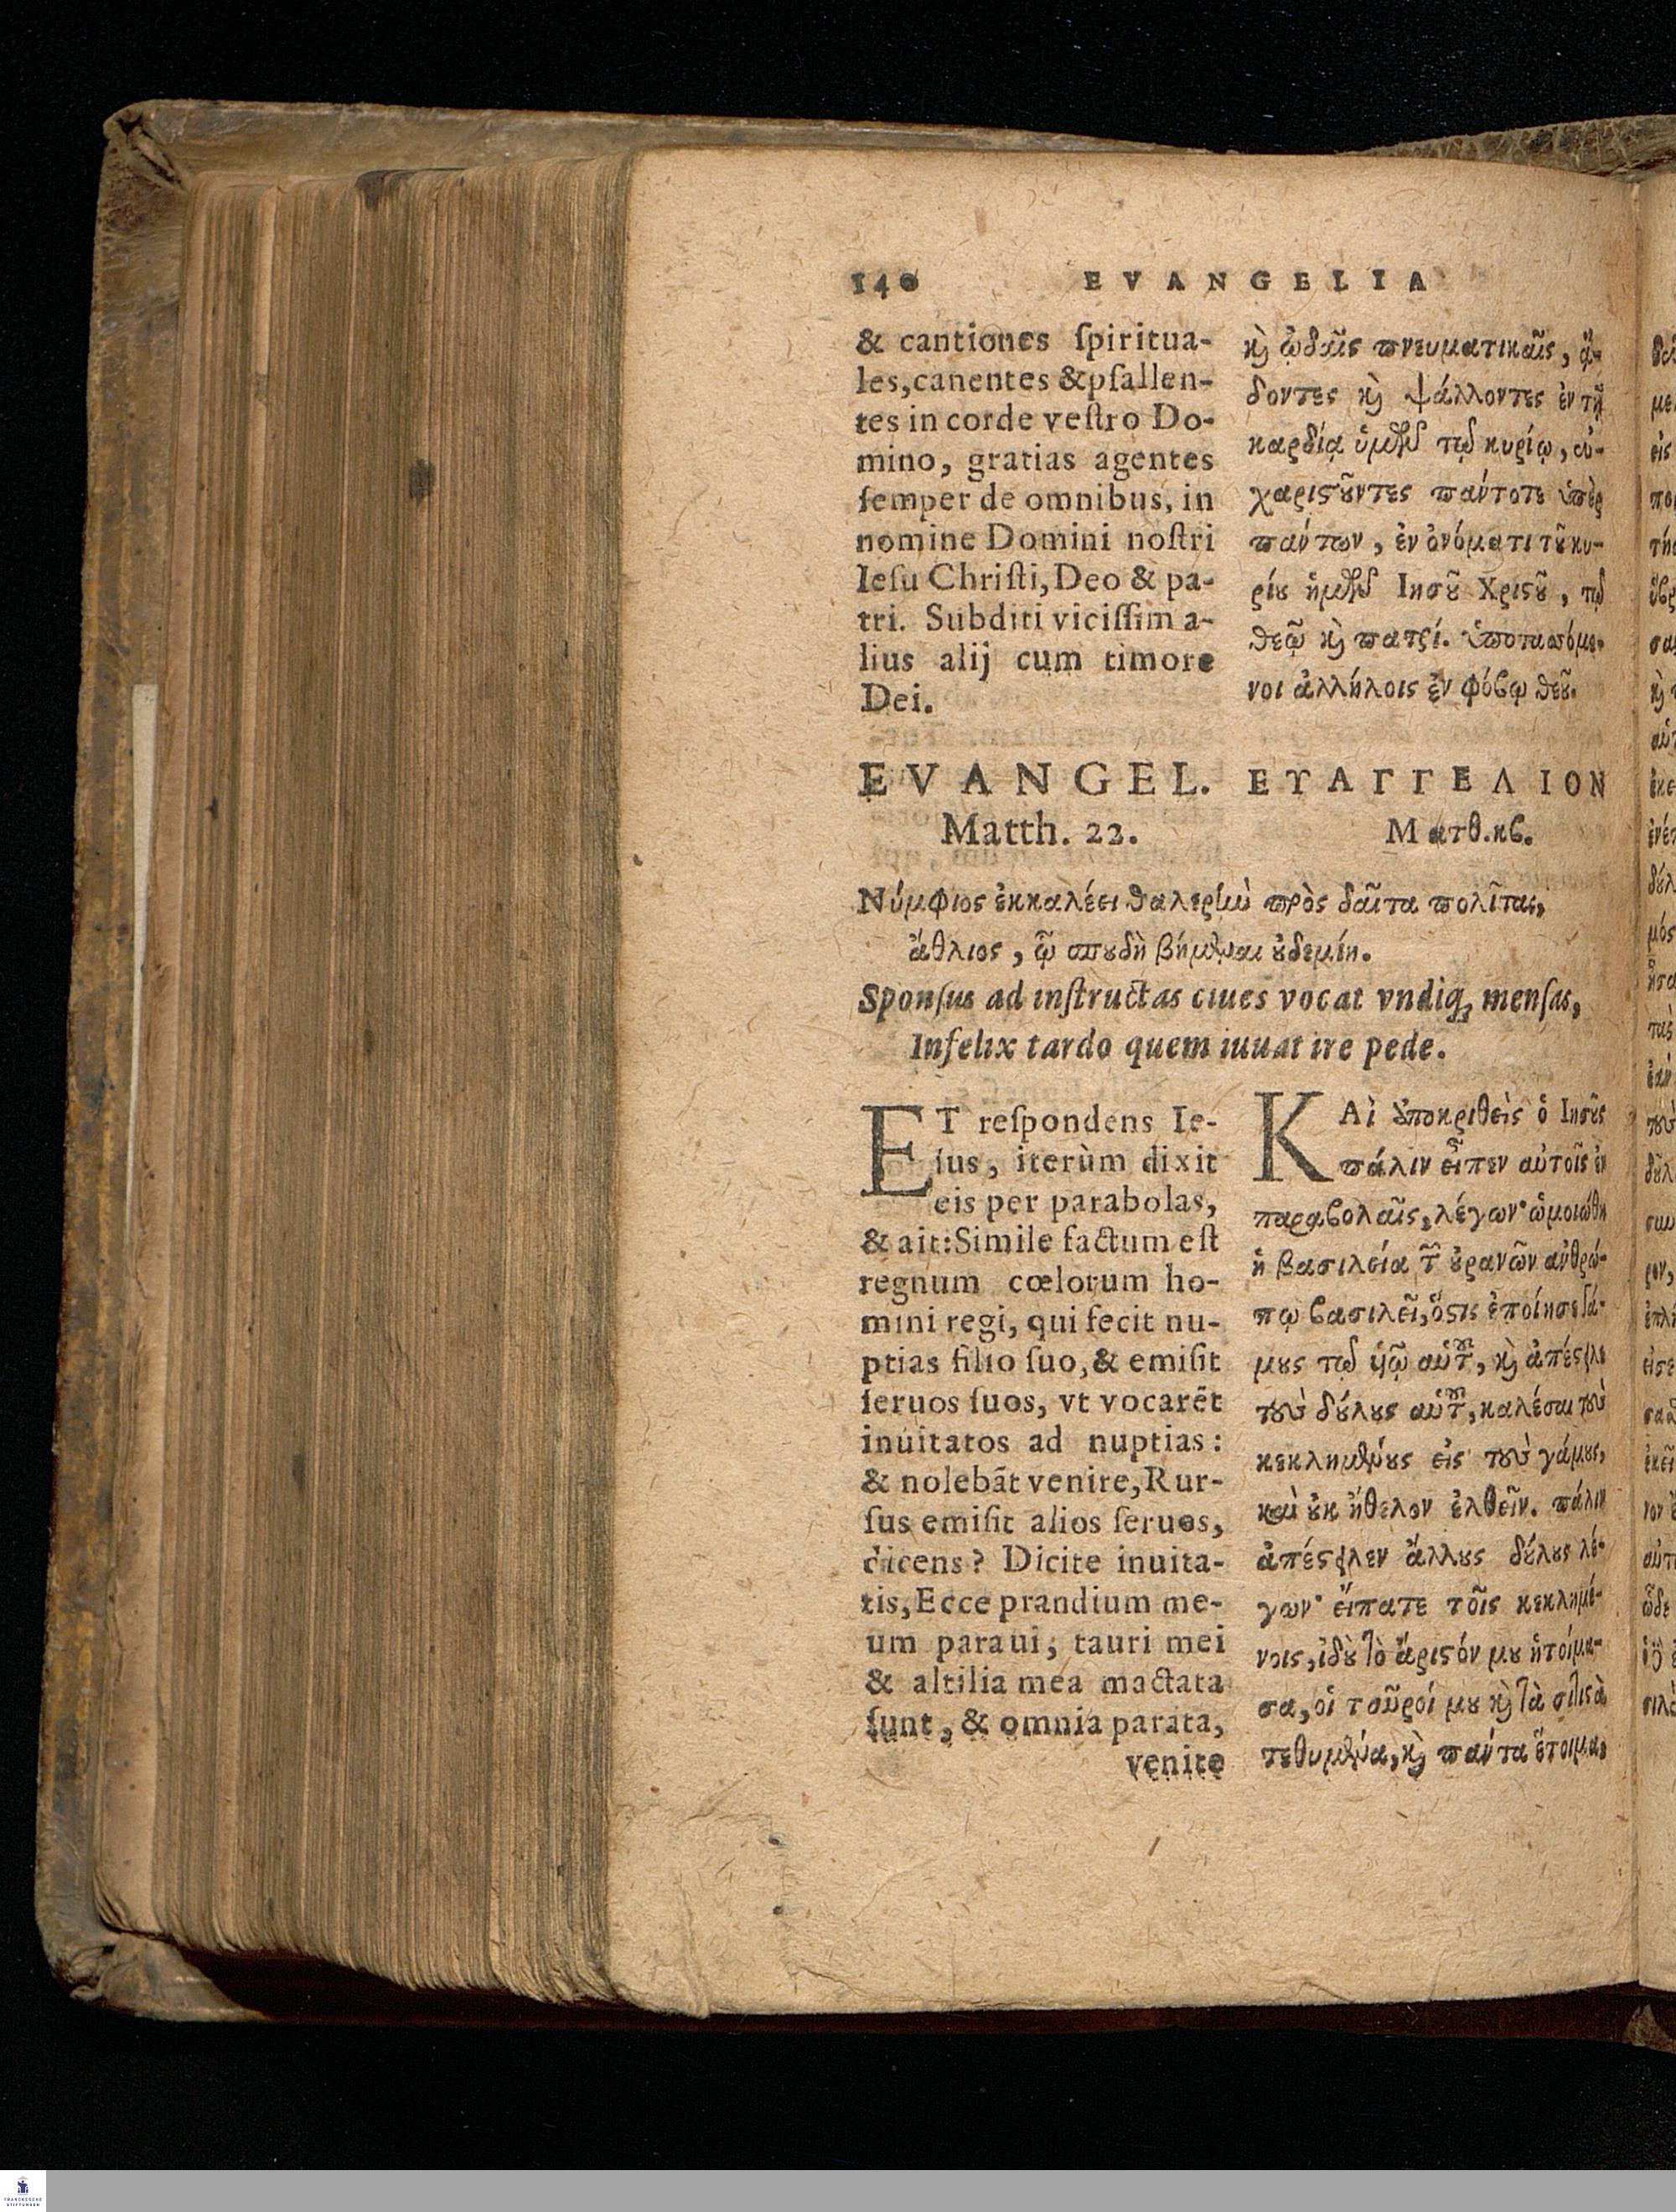 140 EVANGELIA
& cantiones ſpiritua-
les,canentes &pſallen-
tes in corde veſtro Do-
mino, gratias agentes
ſemper de omnibus, in
nomine Domini noſtri
Ieſu Chriſti, Deo & pa-
tri. Subditi viciſſim a-
lius alij cum timore
Dei.
EVANGEL.
Matth. 22.
ϗ ᾠδαῖς πνευματικαῖς, ᾄ-
δοντες ϗ ψάλλοντες ἐν τῇ
καρδίᾳ ὑμῶν τῷ κυρίῳ, εὐ-
χαριϛοῦντες πάντοτε ὑπὲρ
πάντων, ἐν ὀνόματι τοῦ κυ-
ρίου ἡμῶν Ιησοῦ Χριϛοῦ, τῷ
θεῷ ϗ πατρί. ὑποτασσόμε-
νοι ἀλλήλοις ἐν φόβῳ θεοῦ.
ΕΥΑΓΓΕΛΙΟΝ
Ματθ. κβ.
Νύμφιος ἐκκαλέει θαλερὴν πρὸς δαῖτα πολίτας,
ἄθλιος, ᾧ σπουδὴ βήμεναι οὐδεμίη.
Sponſus ad inſtructas ciues vocat vndiq; menſas,
Infelix tardo quem iuuat ire pede.
ET reſpondens Ie-
ſus, iterùm dixit
eis per parabolas,
& ait:Simile factum eſt
regnum cœlorum ho-
mini regi, qui fecit nu-
ptias filio ſuo, & emiſit
ſeruos ſuos, vt vocarẽt
inuitatos ad nuptias:
& nolebãt venire, Rur-
ſus emiſit alios ſeruos,
dicens? Dicite inuita-
tis, Ecce prandium me-
um paraui; tauri mei
& altilia mea mactata
ſunt, & omnia parata,
venite
ΚΑὶ ἀποκριθεὶς ὁ Ιησοῦς
πάλιν εἶπεν αὐτοῖς ἐν
παραβολαῖς, λέγων· ὡμοιώθη
ἡ βασιλεία τῶν οὐρανῶν ἀνθρώ-
πῳ βασιλεῖ, ὅϛις ἐποίησε γά-
μους τῷ ὑιῷ αὑτοῦ, ϗ ἀπέϛειλε
τοὺς δούλους αὑτοῦ, καλέσαι τοὺς
κεκλημένους εἰς τοὺς γάμους,
καὶ οὐκ ἤθελον ἐλθεῖν. πάλιν
ἀπέϛειλεν ἄλλους δούλους λέ-
γων· εἴπατε τοῖς κεκλημέ-
νοις, ἰδοὺ τὸ ἄριϛόν μου ἡτοίμα-
σα, οἱ ταῦροί μου ϗ τὰ σιτιϛὰ
τεθυμένα, ϗ πάντα ἕτοιμα,
FRANCKESCHE
STIFTUNGEN